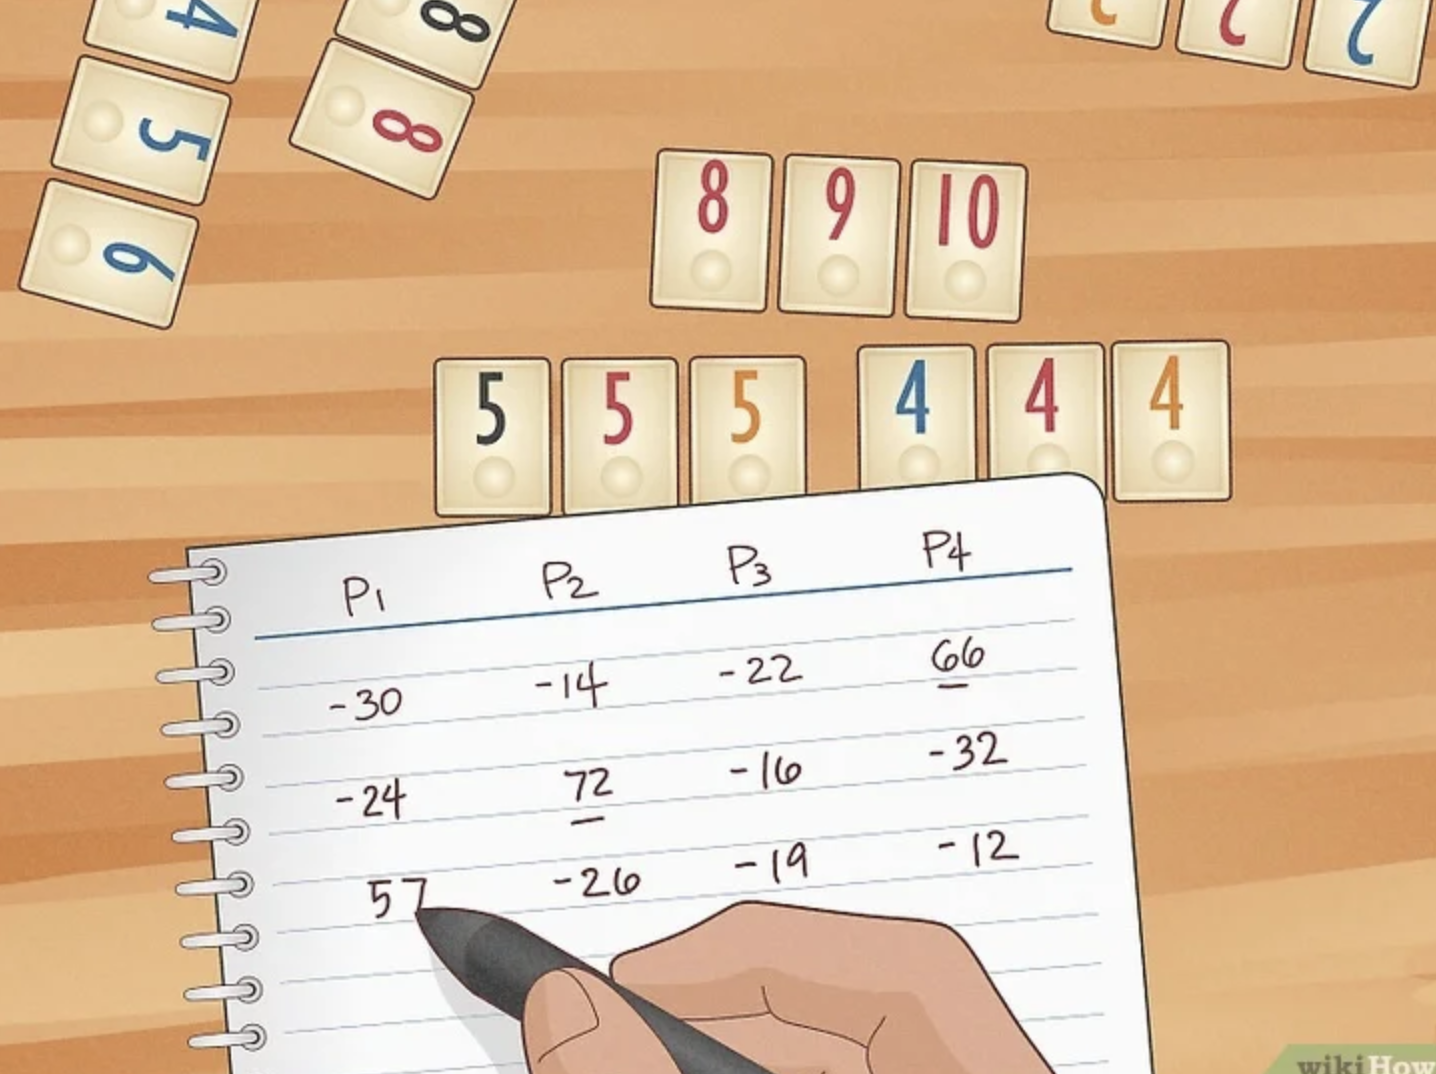 4
8
2 2 2
5
8
6
8 9 10
5 5 5 4 4 4
P1 P2 P3 P4
-30 -14 -22 66
-24 72 -16 -32
57 -26 -19 -12
wikiHow